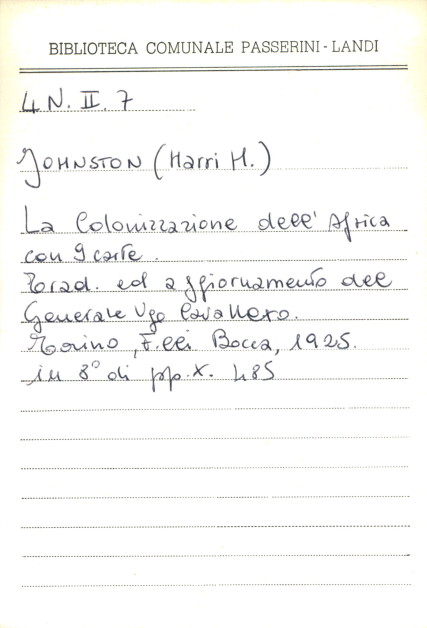 BIBLIOTECA COMUNALE PASSERINI - LANDI
4 N. II. 7
JOHNSTON (Harri H.)
La Colonizzazione dell' Africa
con 9 carte.
Trad. ed aggiornamento del
Generale Ugo Cavallero.
Torino, F.lli Bocca, 1925.
in 8° di pp. X. 485